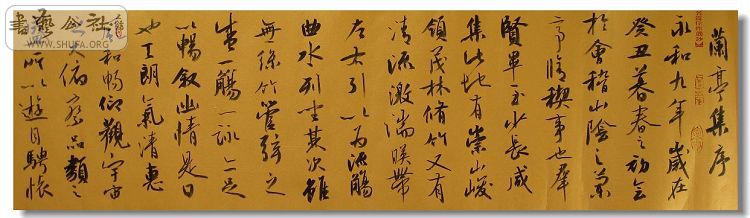 蘭亭集序
永和九年歲在
癸丑暮春之初會
於會稽山陰之蘭
亭脩稧事也羣
賢畢至少長咸
集此地有崇山峻
領茂林脩竹又有
清流激湍暎帶
左右引以為流觴
曲水列坐其次雖
無絲竹管弦之
盛一觴一詠亦足
以暢叙幽情是日
也天朗氣清惠
風和暢仰觀宇宙
之大俯察品類之
盛所以遊目騁懷
WWW.SHUFA.ORG